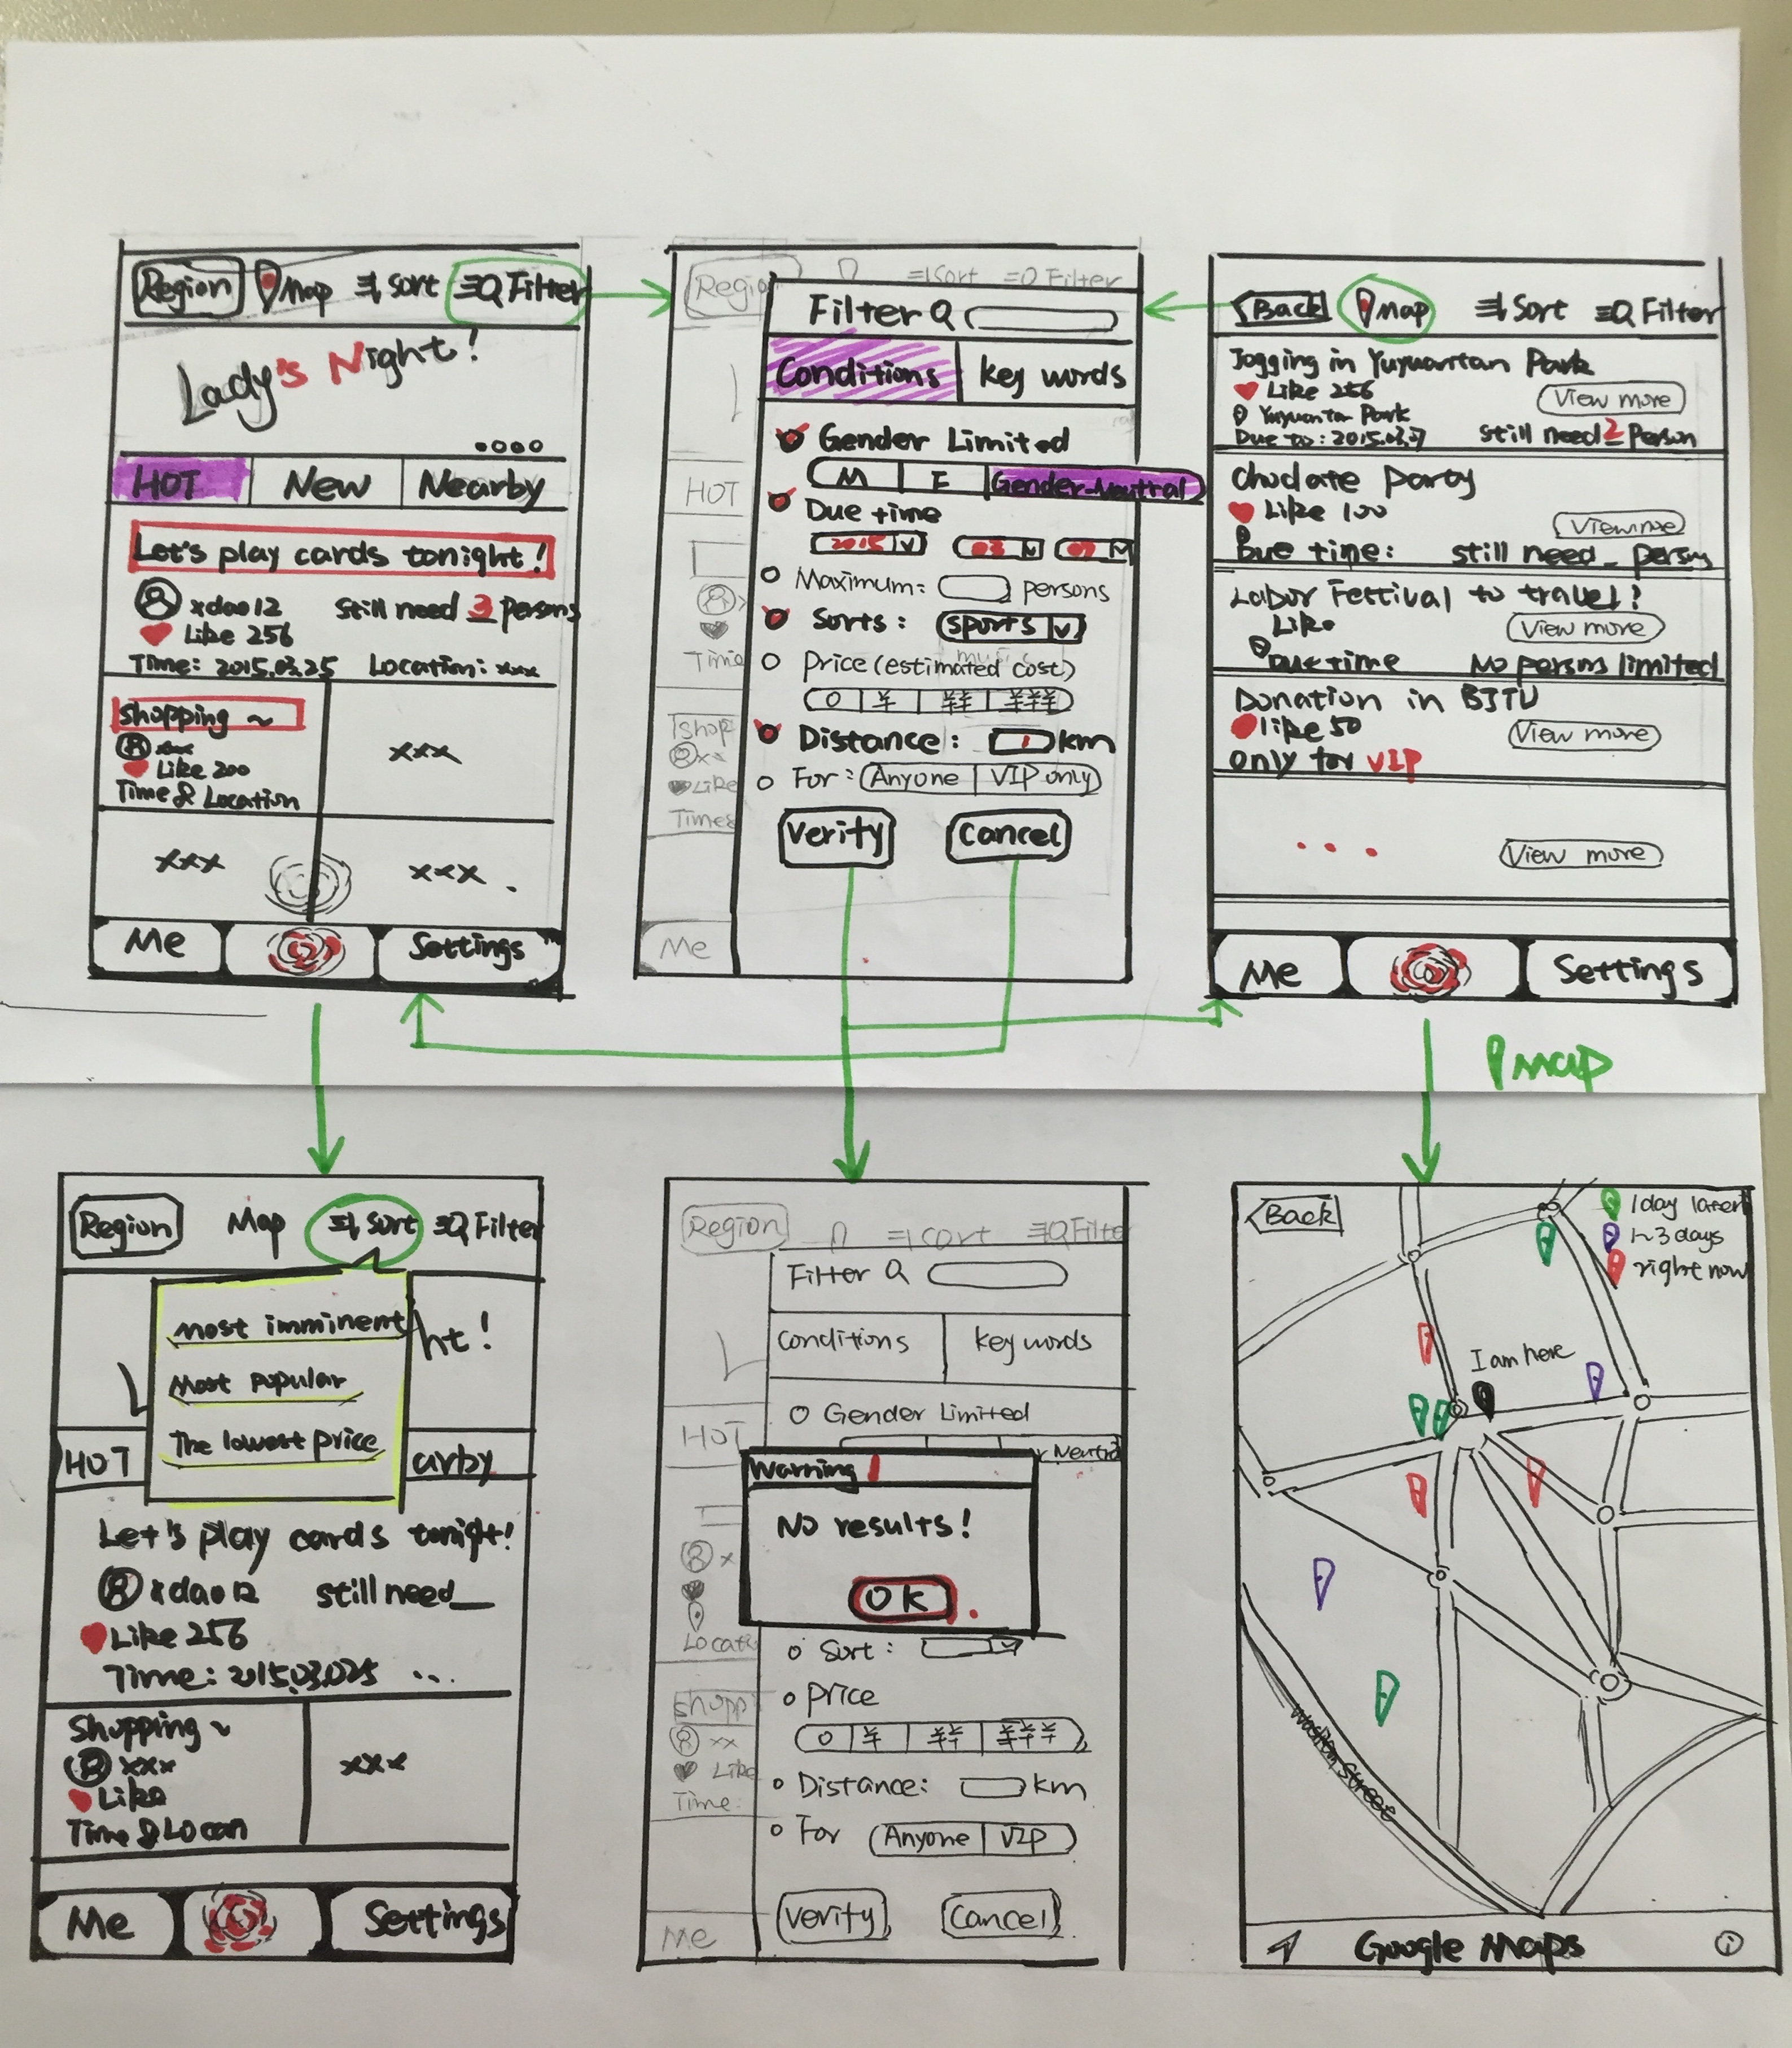 Region Map Sort Filter
Lady's Night!
HOT New Nearby
Let's play cards tonight!
xdao12 Still need 3 persons
Like 256
Time: 2015.03.25 Location: xxx
Shopping ~
xxx
Like 200
Time & Location
xxx
xxx
xxx
Me Settings
Region Sort Filter
HOT
Time
Shop
xx
Like
Times
Me
Filter
Conditions key words
Gender Limited
M F Gender-Neutral
Due time
2015 03 07
Maximum: persons
Sorts: Sports
Price (estimated cost)
0 ¥ ¥¥ ¥¥¥
Distance: 1 km
For: Anyone VIP only
Verity Cancel
Back Map Sort Filter
Jogging in Yuyuantan Park
Like 256 View more
Yuyuantan Park
Due to: 2015.03.07 Still need 2 Person
Choclate Party
Like 100
Due time: still need _ person
Labor Festival to travel?
Like View more
Due time No persons limited
Donation in BJTU
like 50 View more
only for VIP
... View more
Me Settings
Map
Region Map Sort Filter
most imminent
Most popular
The lowest price
ht!
HOT arby
Let's play cards tonight!
xdao12 still need_
Like 256
Time: 2015.03.025 ...
Shopping ~
xxx
Like
Time & Locan
xxx
Me Settings
Region Sort Filte
HOT
x
Locati
Shopp
xx
Like
Time:
Me
Filter
Conditions key words
Gender Limited
r Neutral
Warning!
No results!
OK
Sort:
Price
0 ¥ ¥¥ ¥¥¥
Distance: km
For Anyone VIP
Verity Cancel
Back
1 day later
1~3 days
right now
I am here
Street
Google Maps